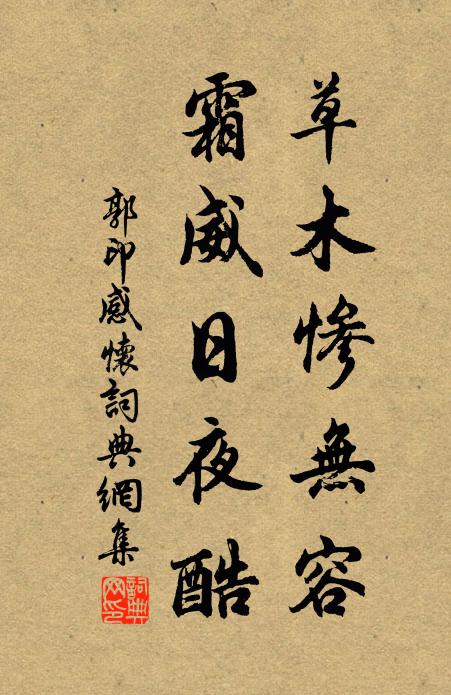 草木慘無容
霜威日夜酷
郭印感懷詞典網集
詞典网印